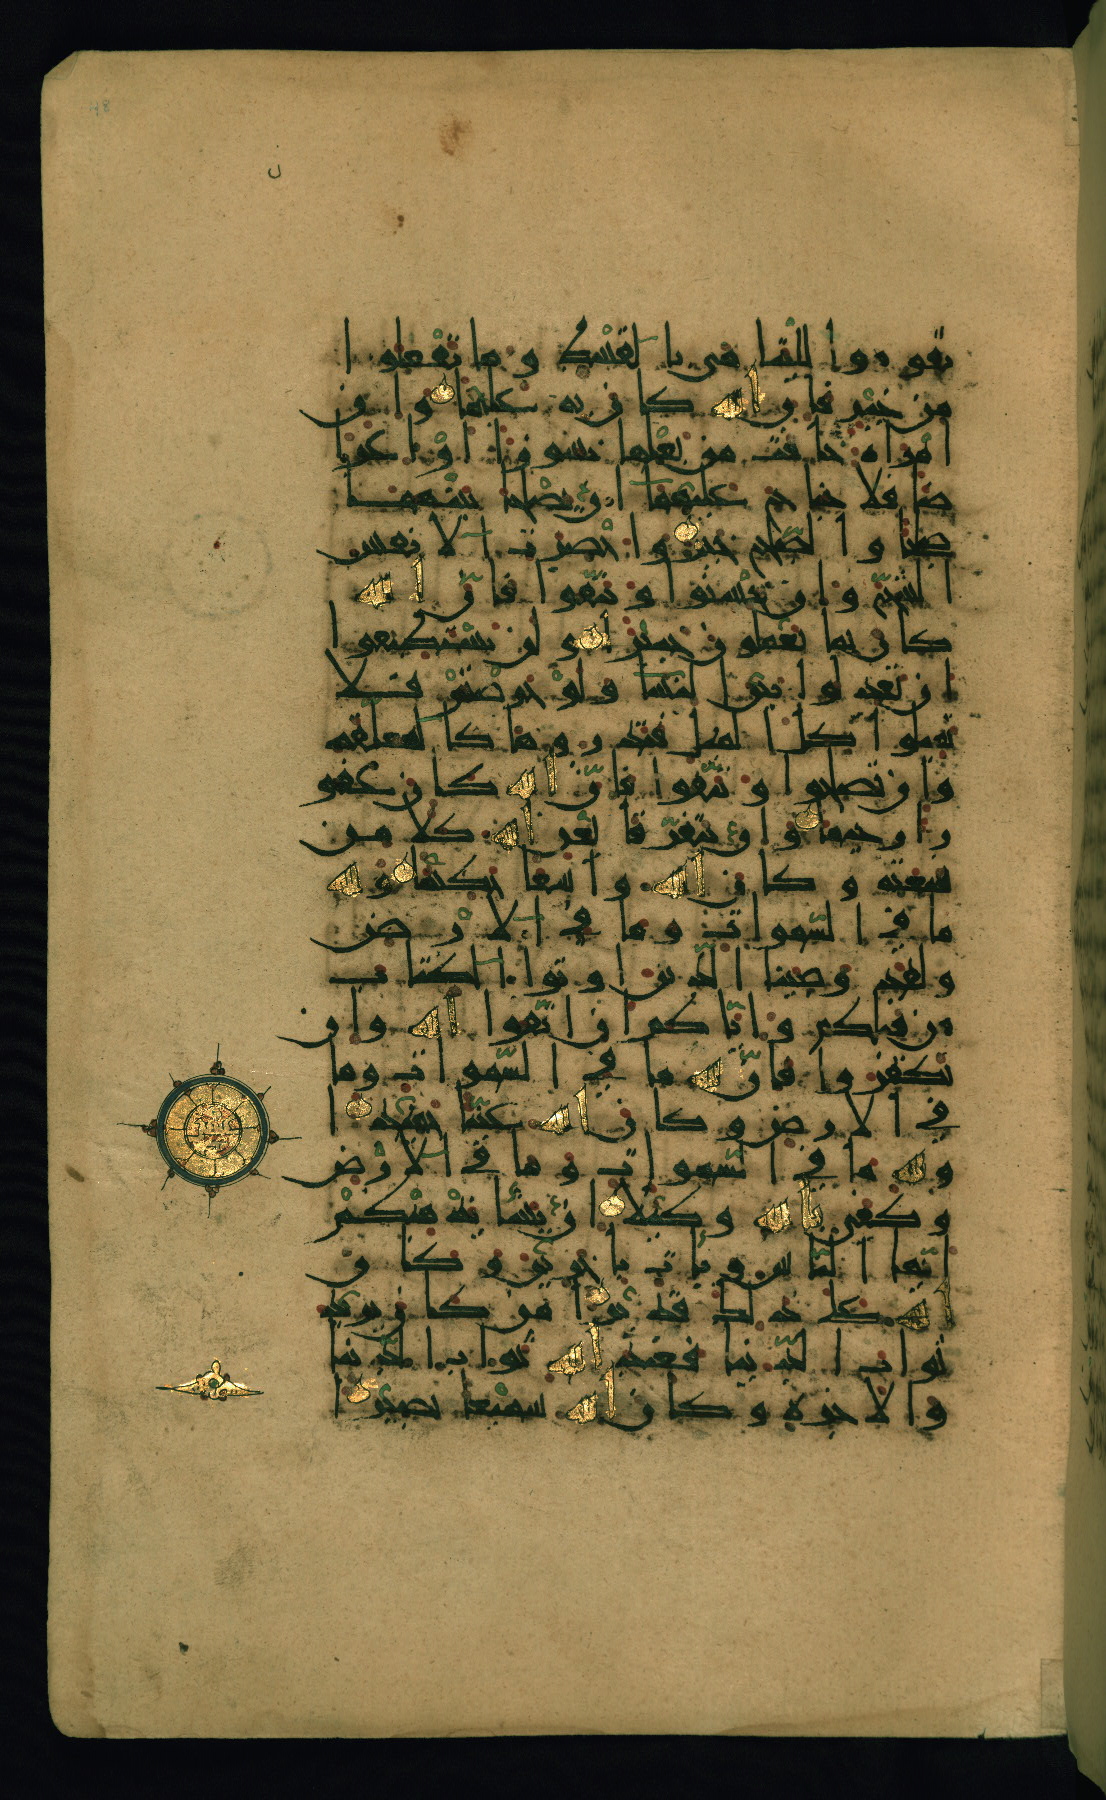 48
ل
تقوموا لليتامى بالقسط وما تفعلوا
من خير فان الله كان به عليما وان
امراة خافت من بعلها نشوزا او اعرا
ضا فلا جناح عليهما ان يصلحا بينهما
صلحا والصلح خير واحضرت الانفس
الشح وان تحسنوا وتتقوا فان الله
كان بما تعملون خبيرا ولن تستطيعوا
ان تعدلوا بين النسا ولو حرصتم فلا
تميلوا كل الميل فتذروها كالمعلقة
وان تصلحوا وتتقوا فان الله كان غفو
را رحيما وان يتفرقا يغن الله كلا من
سعته وكان الله واسعا حكيما ولله
ما في السموات وما في الارض
ولقد وصينا الذين اوتوا الكتاب
من قبلكم واياكم ان اتقوا الله وان
تكفروا فان لله ما في السموات وما
في الارض وكان الله غنيا حميدا
ولله ما في السموات وما في الارض
وكفى بالله وكيلا ان يشا يذهبكم
ايها الناس ويات باخرين وكان
الله على ذلك قديرا من كان يريد
ثواب الدنيا فعند الله ثواب الدنيا
والاخرة وكان الله سميعا بصيرا